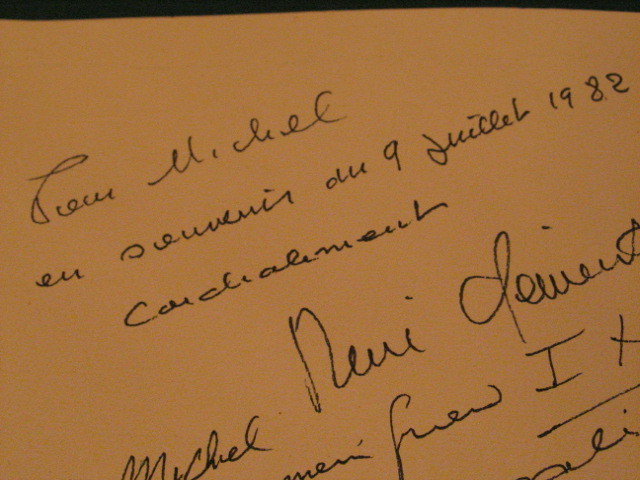 Pour Michel
en souvenir du 9 Juillet 1982
Cordialement
René Clément
Michel